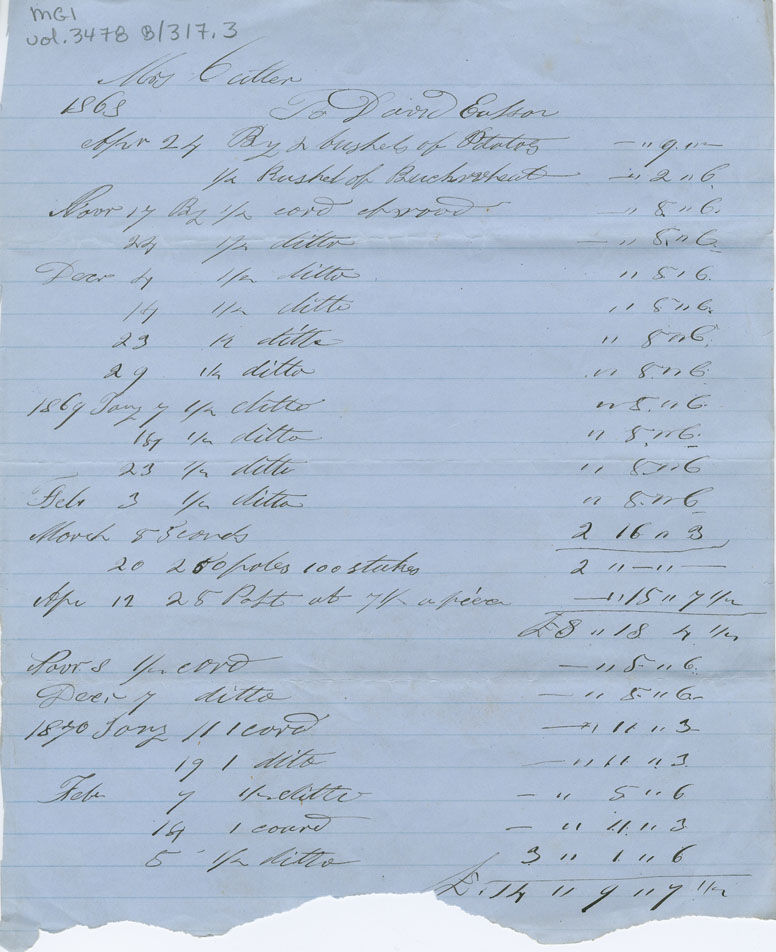 MG1
vol. 3478 B/317.3
Mrs Cutler
1868 To David Eusson
Apr 24 By 2 bushels of Potatos — " 9 "—
1/2 Bushel of Buchwheat — " 2 " 6
Novr 17 By 1/2 cord of wood — " 5 " 6
24 1/2 ditto — " 5 " 6
Decr 4 1/2 ditto " 5 " 6
14 1/2 ditto " 5 " 6
23 1/2 ditto " 5 " 6
29 1/2 ditto " 5 " 6
1869 Jany 7 1/2 ditto " 5 " 6
14 1/2 ditto " 5 " 6
23 1/2 ditto " 5 " 6
Feb 3 1/2 ditto " 5 " 6
March 5 5 cords 2 16 " 3
20 250 poles 100 stakes 2 " — " —
Apr 12 25 Post at 7 1/2 a piece — " 15 " 7 1/2
£8 " 18 4 1/2
Novr 8 1/2 cord — " 5 " 6
Decr 7 ditto — " 5 " 6
1870 Jany 11 1 cord — " 11 " 3
19 1 dito — " 11 " 3
Feb 7 1/2 ditto — " 5 " 6
14 1 courd — " 11 " 3
5 1/2 ditto 3 " 1 " 6
£ 14 " 9 " 7 1/2